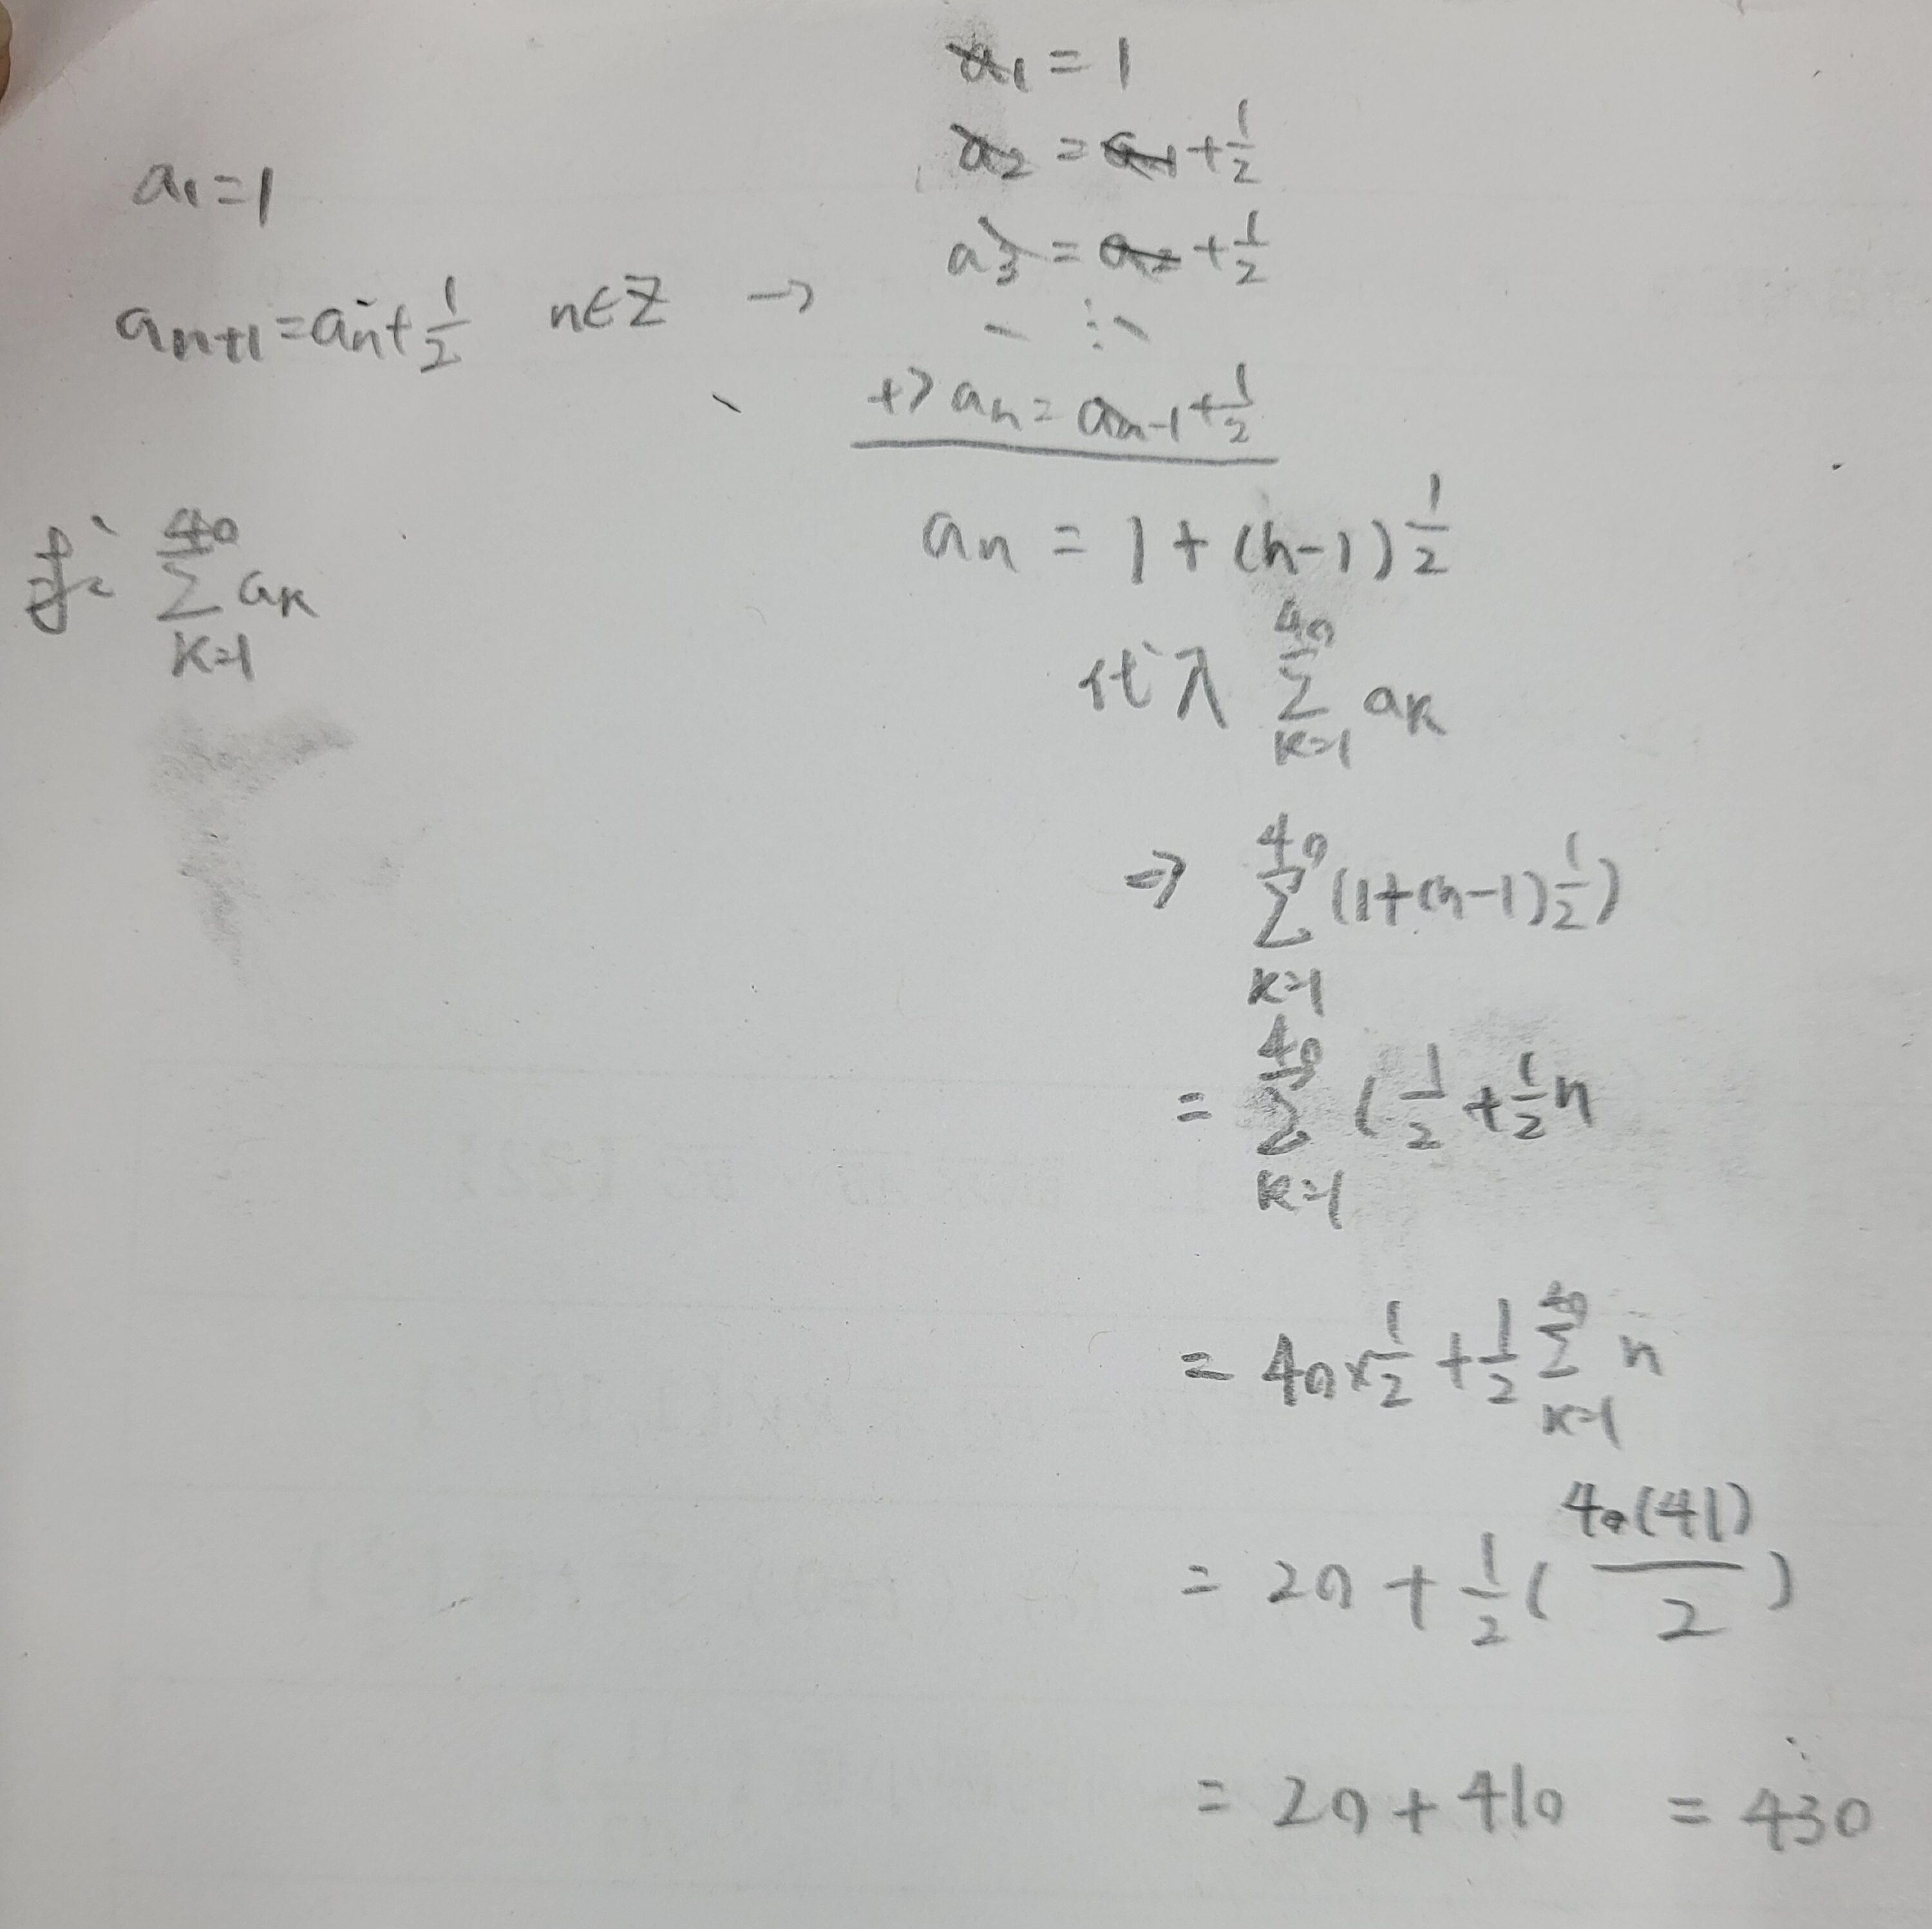 a₁=1
aₙ₊₁=aₙ+1/2 n∈Z →
求 40∑k=1 aₖ
a₁ = 1
a₂ = a₁ + 1/2
a₃ = a₂ + 1/2
⋮
+) aₙ = aₙ₋₁ + 1/2
aₙ = 1 + (n-1) 1/2
代入 40∑k=1 aₖ
⇒ 40∑k=1 (1+(n-1) 1/2)
= 40∑k=1 (1/2 + 1/2 n
= 40 × 1/2 + 1/2 40∑k=1 n
= 20 + 1/2 ( 40(41)/2 )
= 20 + 410 = 430